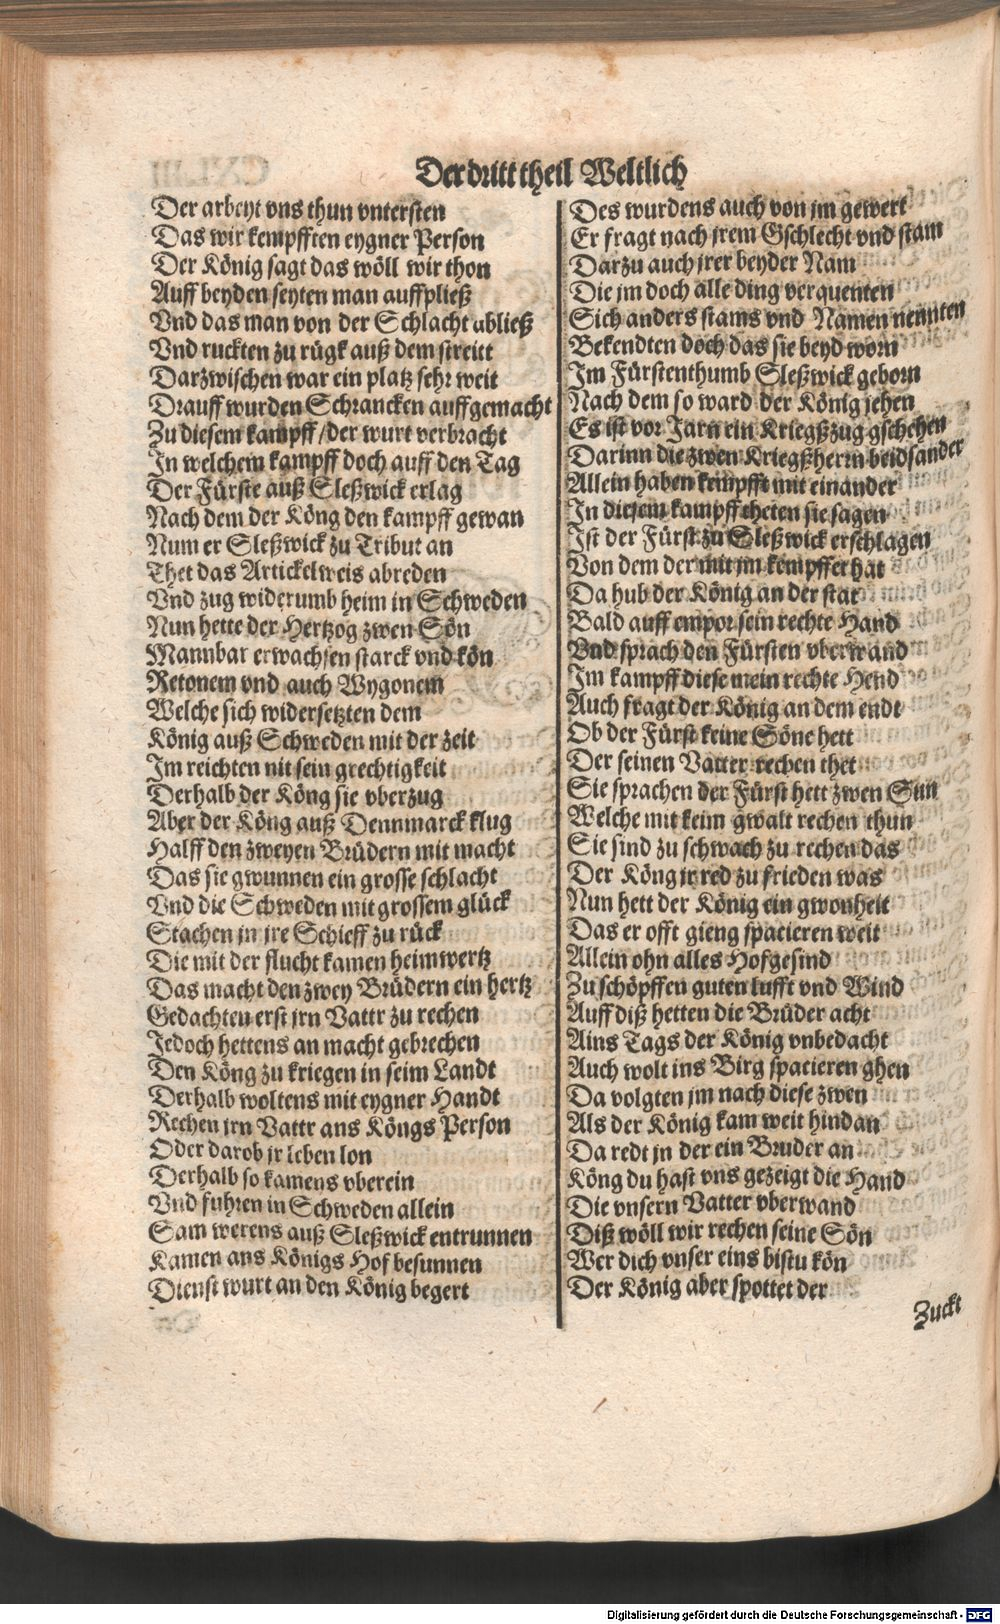 Der dritt theil Weltlich
Der arbeyt vns thun vntersten
Das wir kempfften eygner Person
Der König sagt das wöll wir thon
Auff beyden seyten man auffpließ
Vnd das man von der Schlacht abließ
Vnd ruckten zu rügk auß dem streitt
Darzwischen war ein platz sehr weit
Drauff wurden Schrancken auffgemacht
Zu diesem kampff / der wurt verbracht
In welchem kampff doch auff den Tag
Der Fürste auß Sleßwick erlag
Nach dem der Köng den kampff gewan
Num er Sleßwick zu Tribut an
Thet das Artickelweis abreden
Vnd zug widerumb heim in Schweden
Nun hette der Hertzog zwen Sön
Mannbar erwachsen starck vnd kön
Retonem vnd auch Wygonem
Welche sich widersetzten dem
König auß Schweden mit der zeit
Im reichten nit sein grechtigkeit
Derhalb der Köng sie vberzug
Aber der Köng auß Dennmarck klug
Halff den zweyen Brüdern mit macht
Das sie gwunnen ein grosse schlacht
Vnd die Schweden mit grossem glück
Stachen in jre Schieff zu rück
Die mit der flucht kamen heimwertz
Das macht den zwey Brüdern ein hertz
Gedachten erst jrn Vattr zu rechen
Jedoch hettens an macht gebrechen
Den Köng zu kriegen in seim Landt
Derhalb woltens mit eygner Handt
Rechen jrn Vattr ans Köngs Person
Oder darob jr leben lon
Derhalb so kamens vberein
Vnd fuhren in Schweden allein
Sam werens auß Sleßwick entrunnen
Kamen ans Königs Hof besunnen
Dienst wurt an den König begert
Des wurdens auch von jm gewert
Er fragt nach jrem Gschlecht vnd stam
Darzu auch jrer beyder Nam
Die jm doch alle ding verquenten
Sich anders stams vnd Namen nennten
Bekendten doch das sie beyd worn
Im Fürstenthumb Sleßwick geborn
Nach dem so ward der König jehen
Es ist vor Jarn ein Kriegßzug gschehen
Darinn die zwen Kriegßherrn beidsander
Allein haben kempfft mit einander
In diesem kampff theten sie sagen
Ist der Fürst zu Sleßwick erschlagen
Von dem der mit jm kempffet hat
Da hub der König an der stat
Bald auff empor sein rechte Hand
Vnd sprach den Fürsten vberwand
Im kampff diese mein rechte Hend
Auch fragt der König an dem endt
Ob der Fürst keine Söne hett
Der seinen Vatter rechen thet
Sie sprachen der Fürst hett zwen Sün
Welche mit keim gwalt rechen thun
Sie sind zu schwach zu rechen das
Der Köng jr red zu frieden was
Nun hett der König ein gwonheit
Das er offt gieng spacieren weit
Allein ohn alles Hofgesind
Zu schöpffen guten lufft vnd Wind
Auff diß hetten die Brüder acht
Ains Tags der König vnbedacht
Auch wolt ins Birg spacieren ghen
Da volgten jm nach diese zwen
Als der König kam weit hindan
Da redt jn der ein Bruder an
Köng du hast vns gezeigt die Hand
Die vnsern Vatter vberwand
Diß wöll wir rechen seine Sön
Wer dich vnser eins bistu kön
Der König aber spottet der
Zuckt
Digitalisierung gefördert durch die Deutsche Forschungsgemeinschaft - DFG